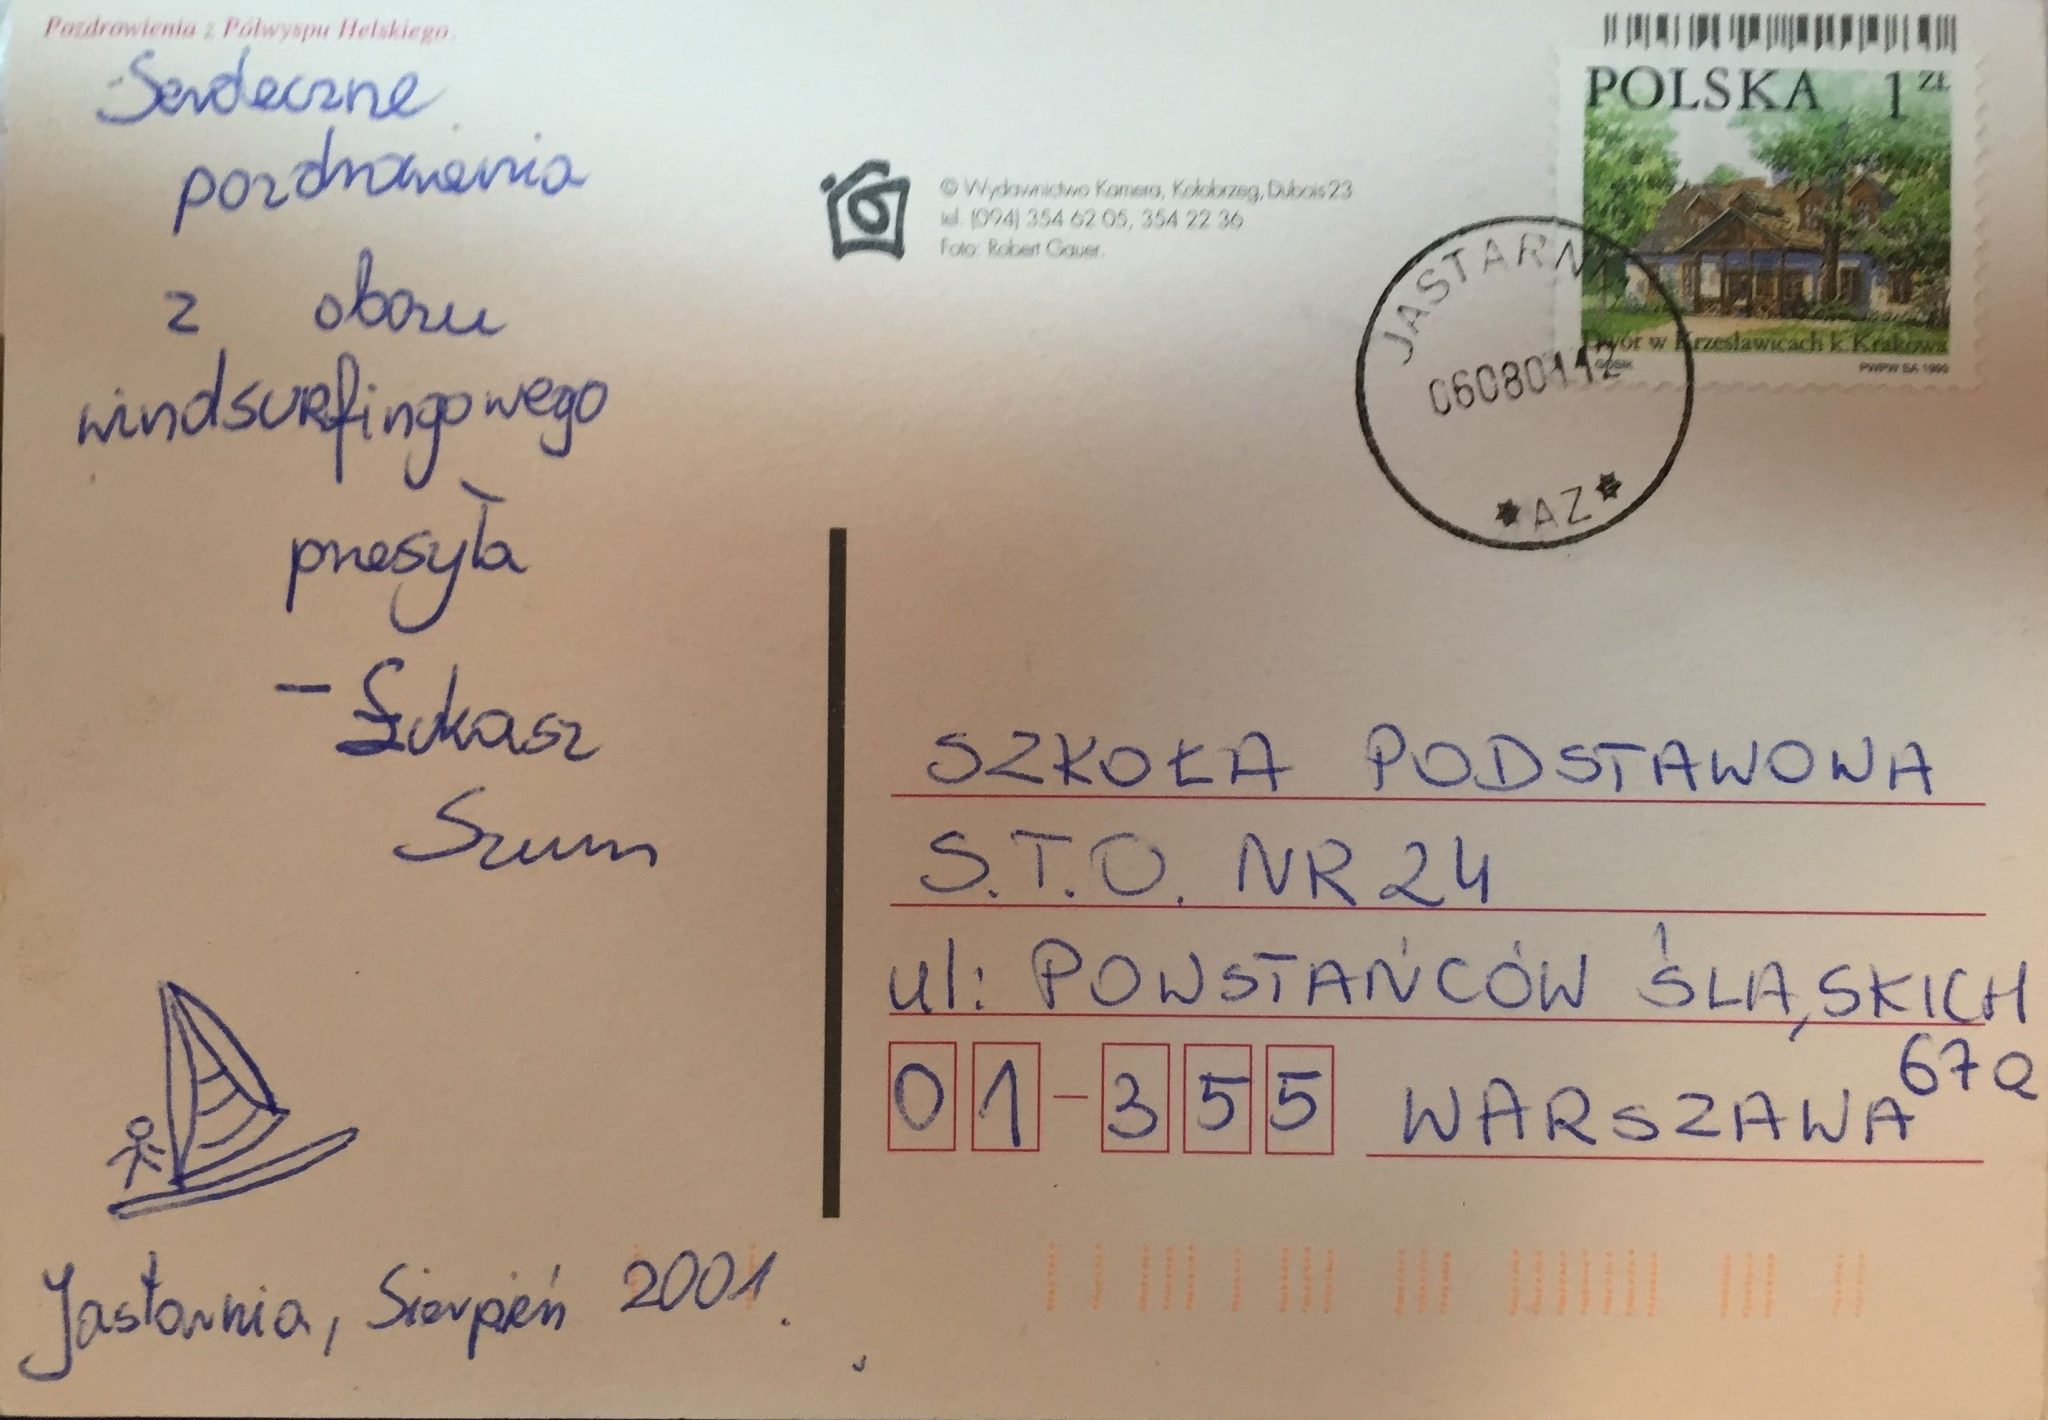 Pozdrowienia z Półwyspu Helskiego.
Serdeczne
pozdrowienia
z obozu
windsurfingowego
przesyła
- Łukasz
Szum
Jastarnia, Sierpień 2001.
© Wydawnictwo Kamera, Kołobrzeg, Dubois 23
tel. (094) 354 62 05, 354 22 36
Foto: Robert Gauer.
POLSKA 1 ZŁ
Dwór w Krzesławicach k. Krakowa
PWPW SA 1999
JASTARNIA
06080112
*AZ*
SZKOŁA PODSTAWOWA
S.T.O. NR 24
ul: POWSTAŃCÓW ŚLĄSKICH
67a
01-355 WARSZAWA